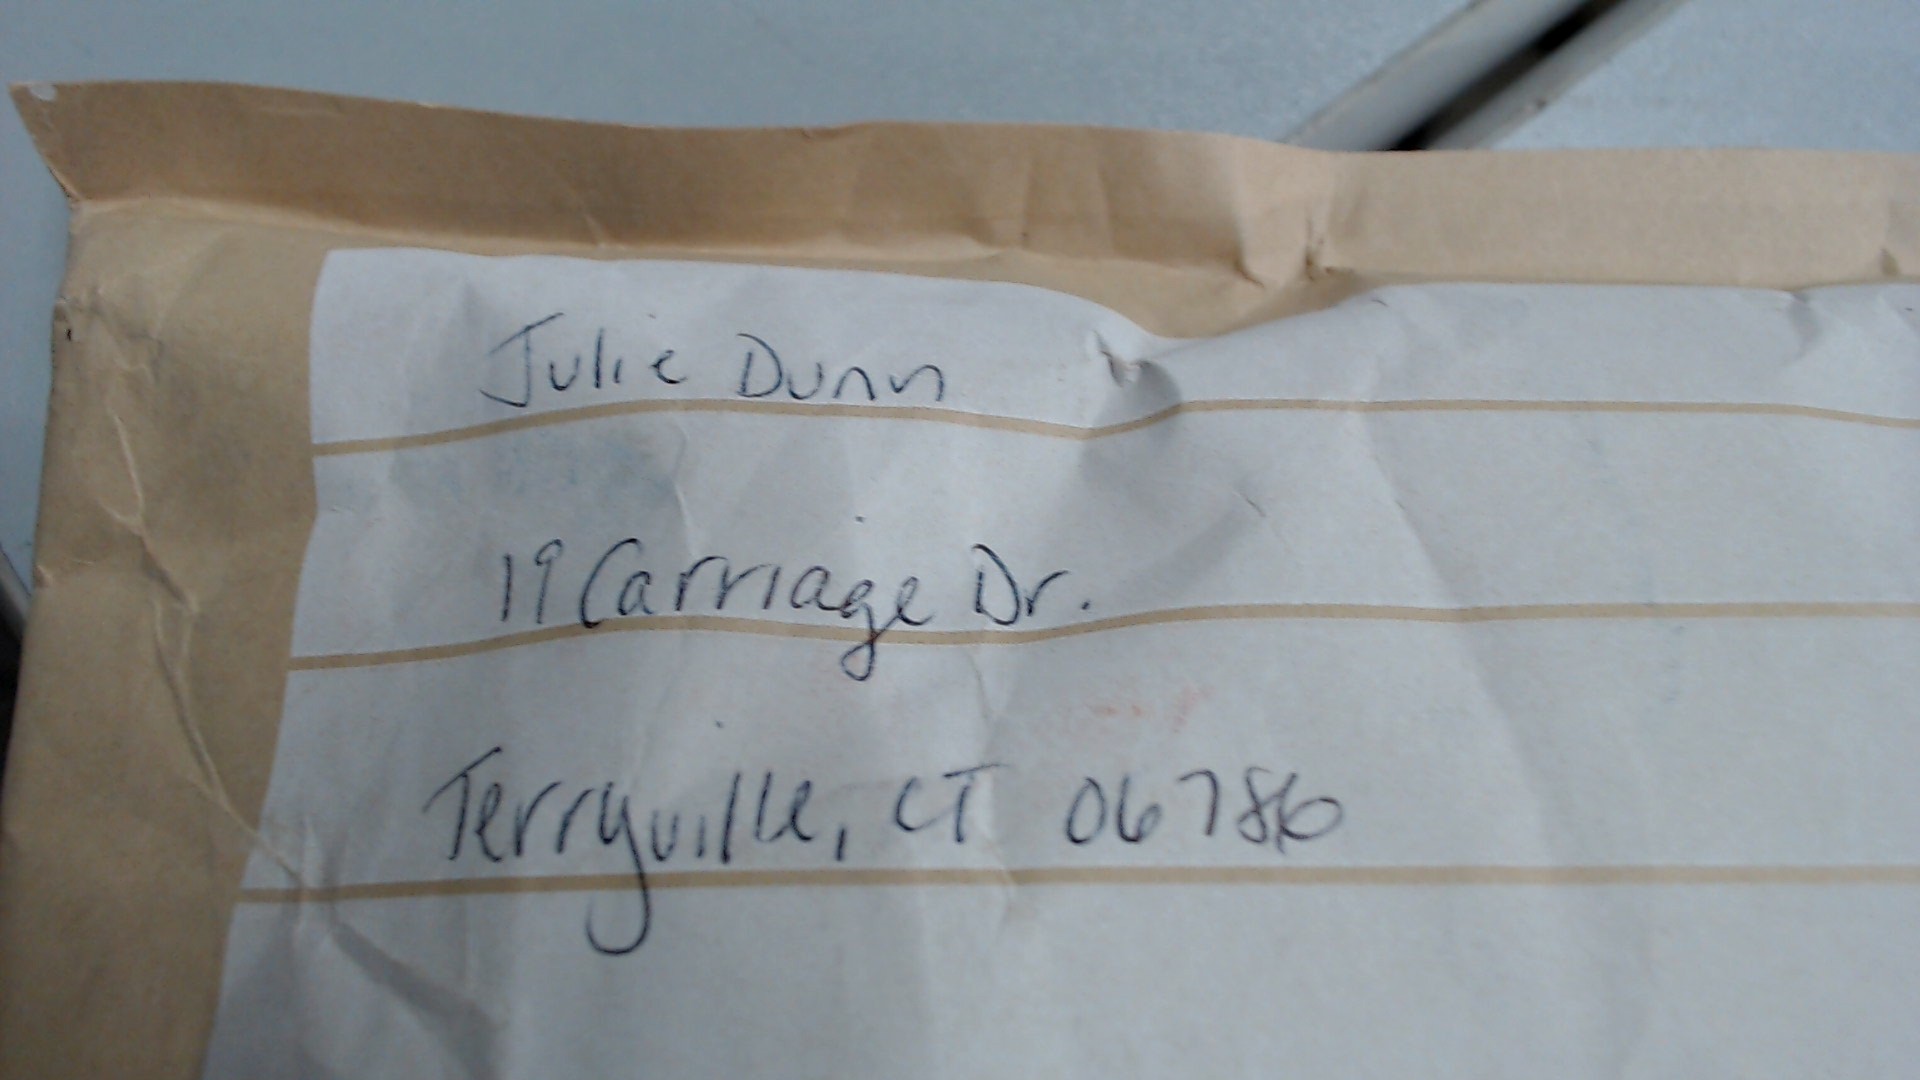 Julie Dunn
19 Carriage Dr.
Terryville, CT 06786